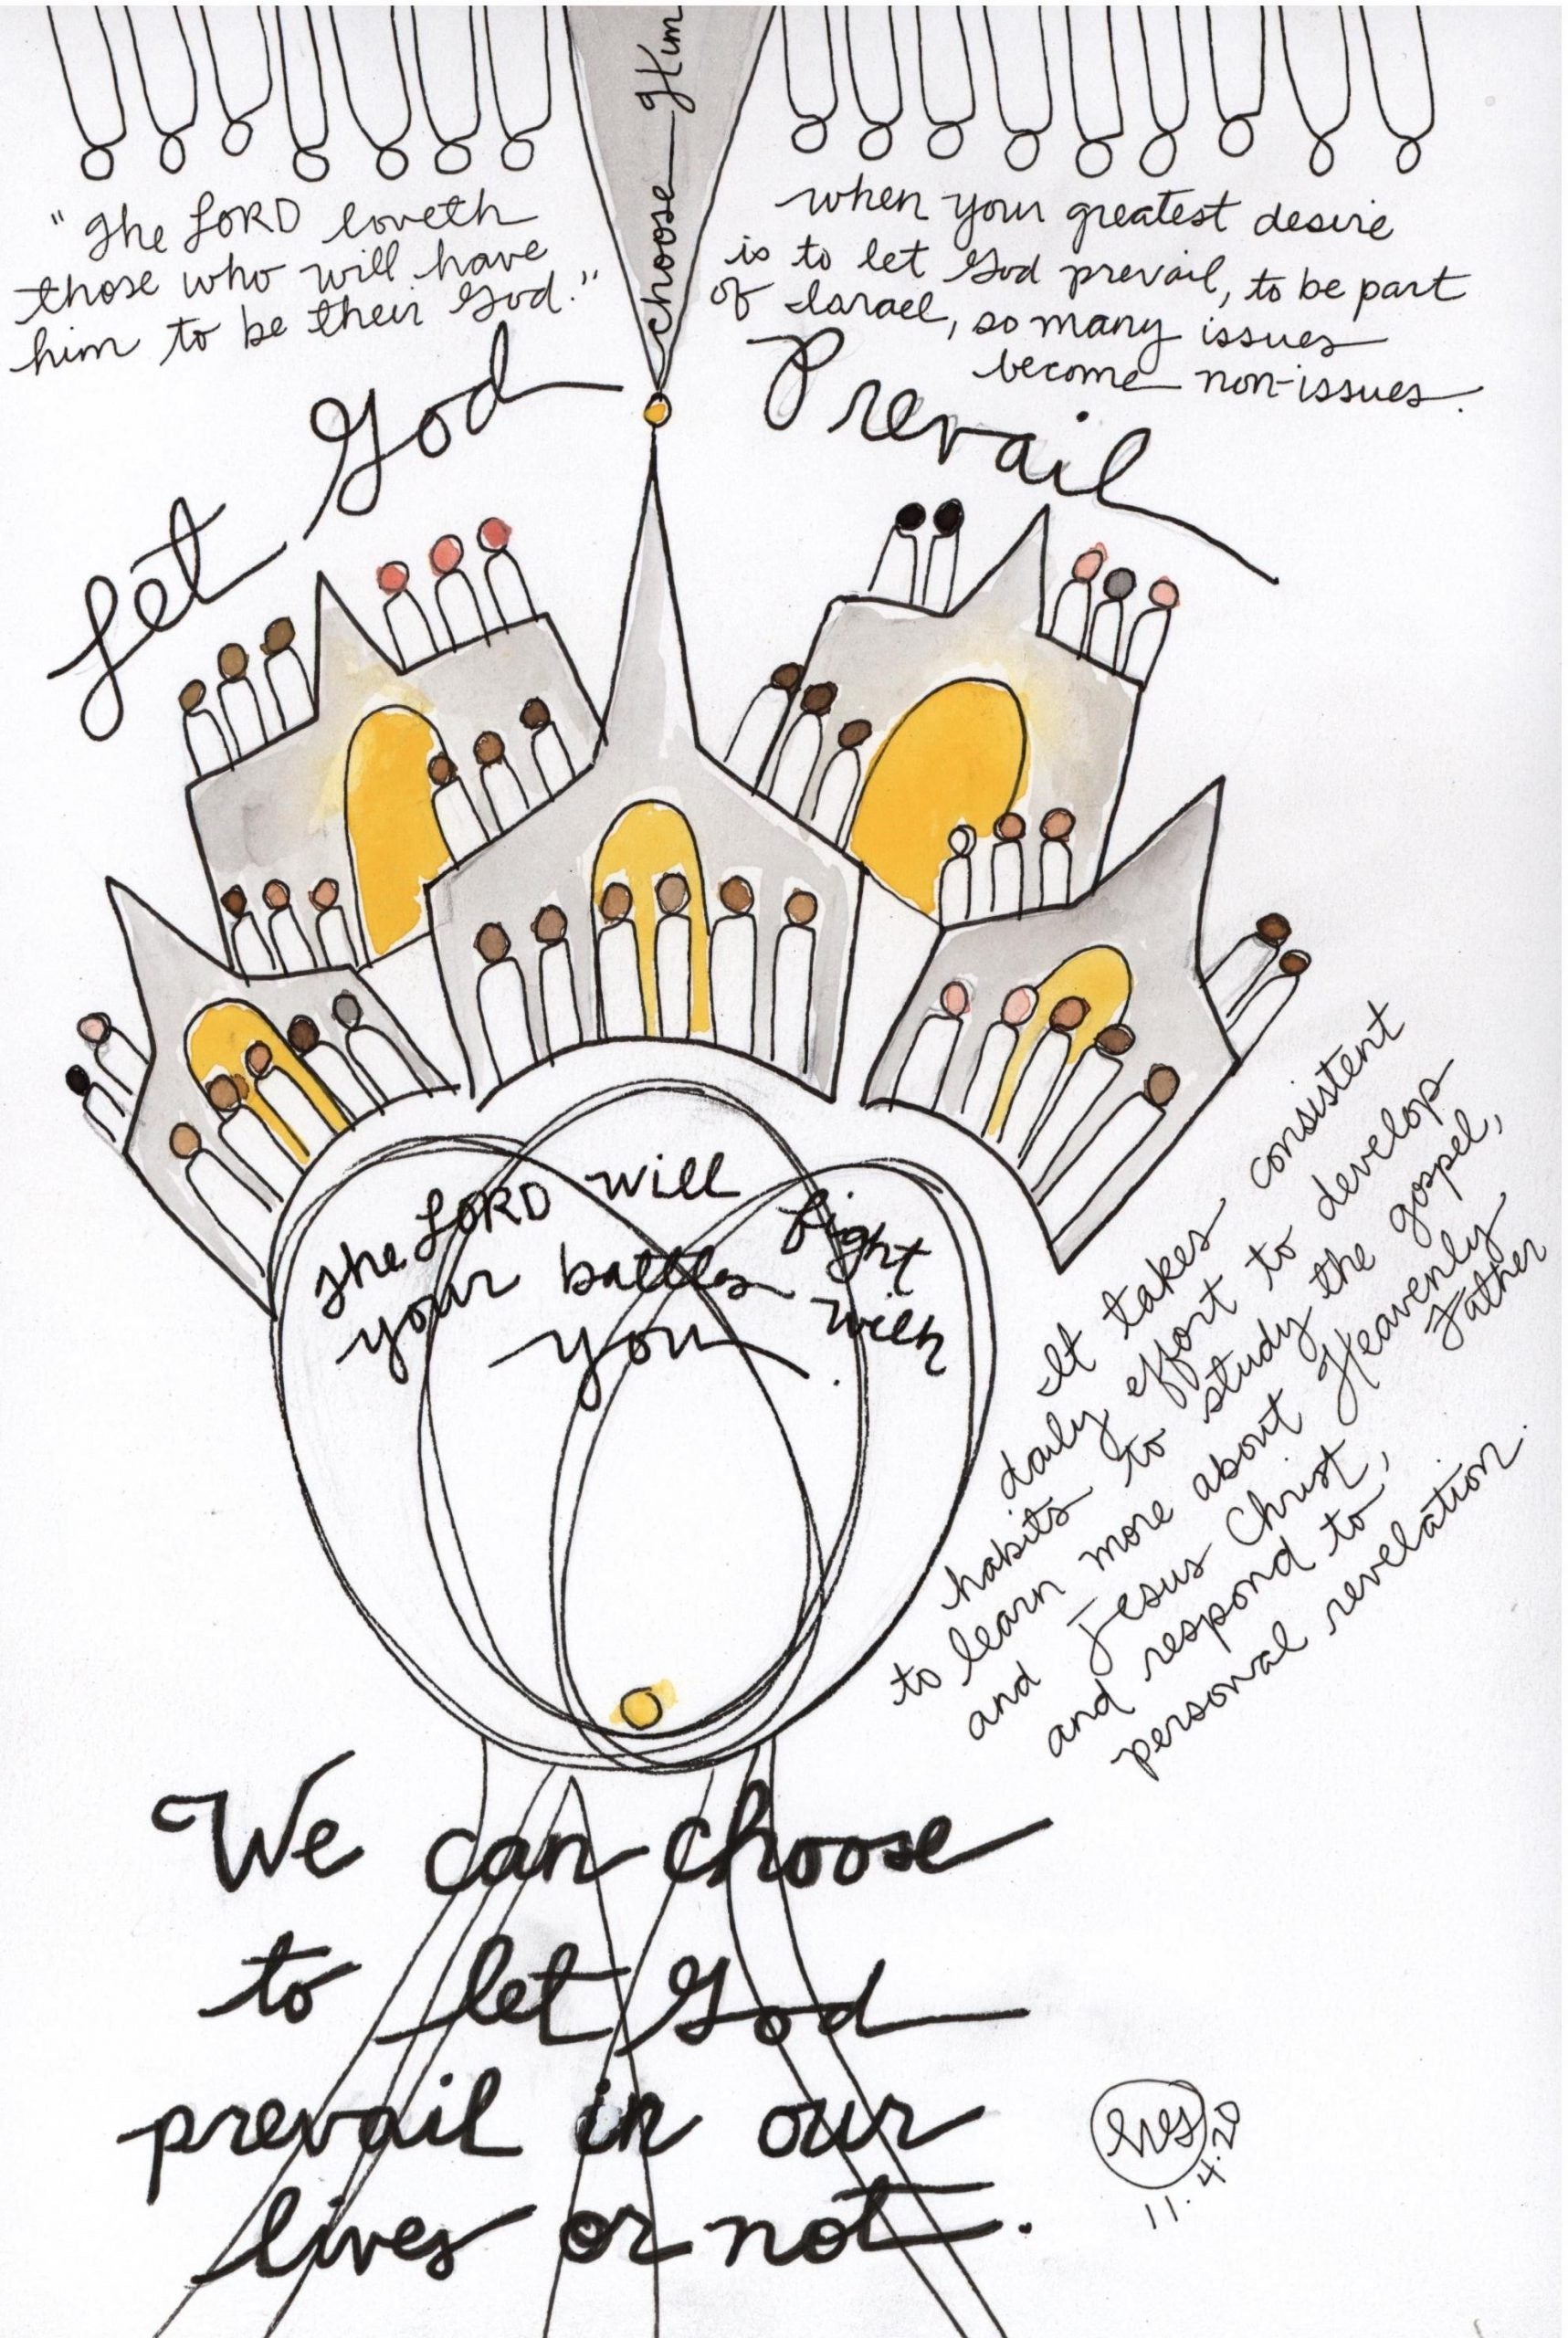 choose Him
"The LORD loveth
those who will have
him to be their God."
when your greatest desire
is to let God prevail, to be part
of Israel, so many issues
become non-issues.
Let God Prevail
The LORD will fight
your battles with
you.
It takes consistent
daily effort to develop
habits to study the gospel,
to learn more about Heavenly Father
and Jesus Christ,
and respond to
personal revelation.
We can choose
to let God
prevail in our
lives or not.
11.4.20